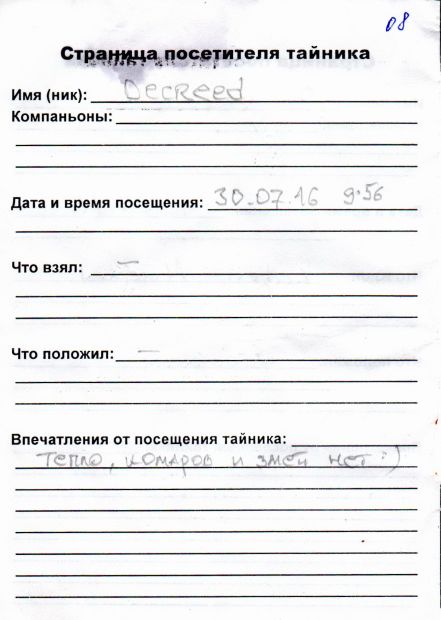 08
Страница посетителя тайника
Имя (ник): Decreed
Компаньоны:
Дата и время посещения: 30.07.16 9:56
Что взял: —
Что положил: —
Впечатления от посещения тайника:
тепло, комаров и змей нет :)